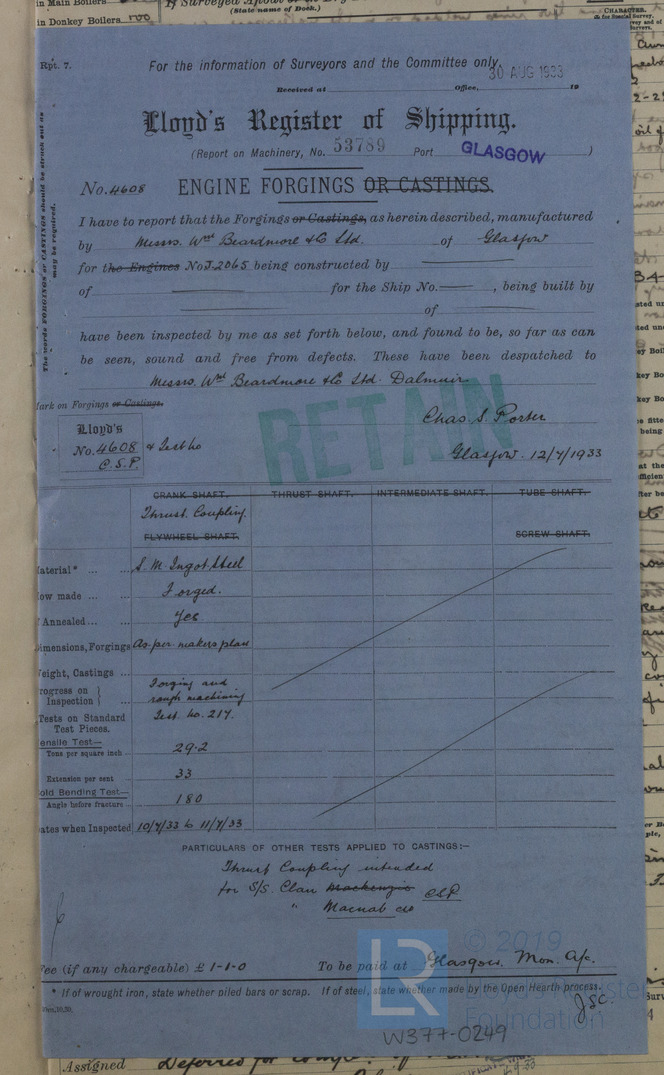 in Main Boilers
(State name of Dock.)
in Donkey Boilers
CHARACTER.
Rpt. 7.
For the information of Surveyors and the Committee only.
30 AUG 1933
Received at Office, 19
Lloyd's Register of Shipping.
(Report on Machinery, No. 53789 Port GLASGOW )
No. 4608 ENGINE FORGINGS OR CASTINGS.
The words FORGINGS or CASTINGS should be struck out as may be required.
I have to report that the Forgings or Castings, as herein described, manufactured
by Messrs. Wm Beardmore & Co Ltd. of Glasgow
for the Engines No J.2065 being constructed by
of for the Ship No. , being built by
of
have been inspected by me as set forth below, and found to be, so far as can
be seen, sound and free from defects. These have been despatched to
Messrs. Wm Beardmore & Co Ltd. Dalmuir
RETAIN
ark on Forgings or Castings.
Chas. S. Porter
Lloyd's
No. 4608 & Test No
C.S.P.
Glasgow. 12/7/1933
CRANK SHAFT. THRUST SHAFT. INTERMEDIATE SHAFT. TUBE SHAFT.
Thrust Coupling.
FLYWHEEL SHAFT. SCREW SHAFT.
aterial* ... ... S. M. Ingot Steel
ow made ... ... Forged.
f Annealed ... ... Yes
imensions, Forgings As per makers plan
eight, Castings ...
rogress on Inspection } Forging and rough machining
Tests on Standard Test Pieces. Test. No. 217.
ensile Test—
Tons per square inch 29.2
Extension per cent 33
old Bending Test—
Angle before fracture 180
ates when Inspected 10/7/33 to 11/7/33
PARTICULARS OF OTHER TESTS APPLIED TO CASTINGS:—
Thrust Coupling intended
for S/S. Clan Mackenzie CSP
" Macnab
ee (if any chargeable) £ 1-1-0 To be paid at Glasgow. Mon. A/c.
* If of wrought iron, state whether piled bars or scrap. If of steel, state whether made by the Open Hearth process.
LR
© 2019
Foundation
W377-0249
Assigned Deferred for